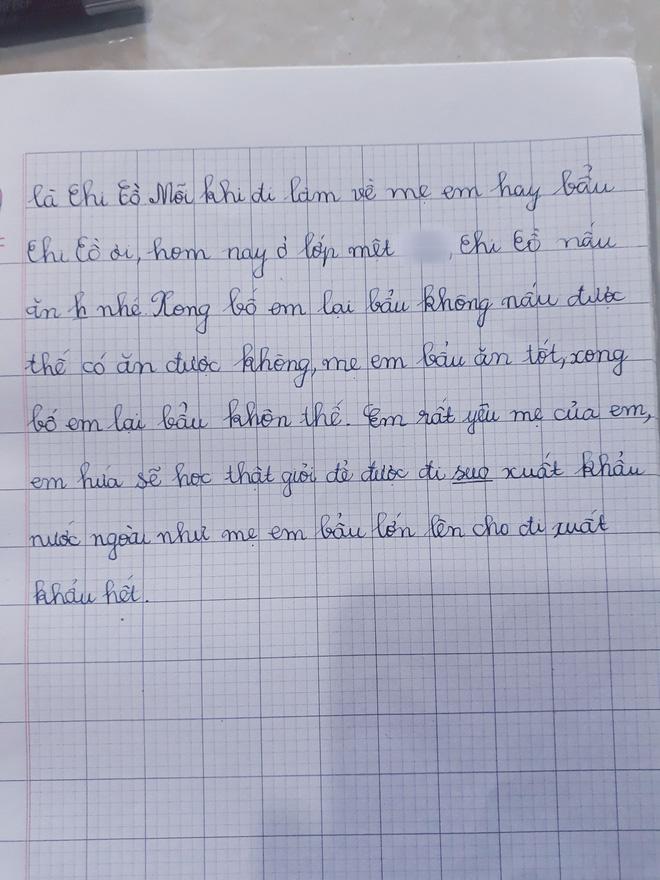 là Thị Tồ Mỗi khi đi làm về mẹ em hay bẩu
Thị Tồ ơi, hom nay ở lớp mệt , Thị Tồ nấu
ăn h nhé Xong bố em lại bảu không nấu được
thế có ăn được không, mẹ em bẩu ăn tốt, xong
bố em lại bẩu khôn thế. Em rất yêu mẹ của em,
em hứa sẽ học thật giỏi để được đi suo xuất khẩu
nước ngoài như mẹ em bẩu lớn lên cho đi xuất
khẩu hết.